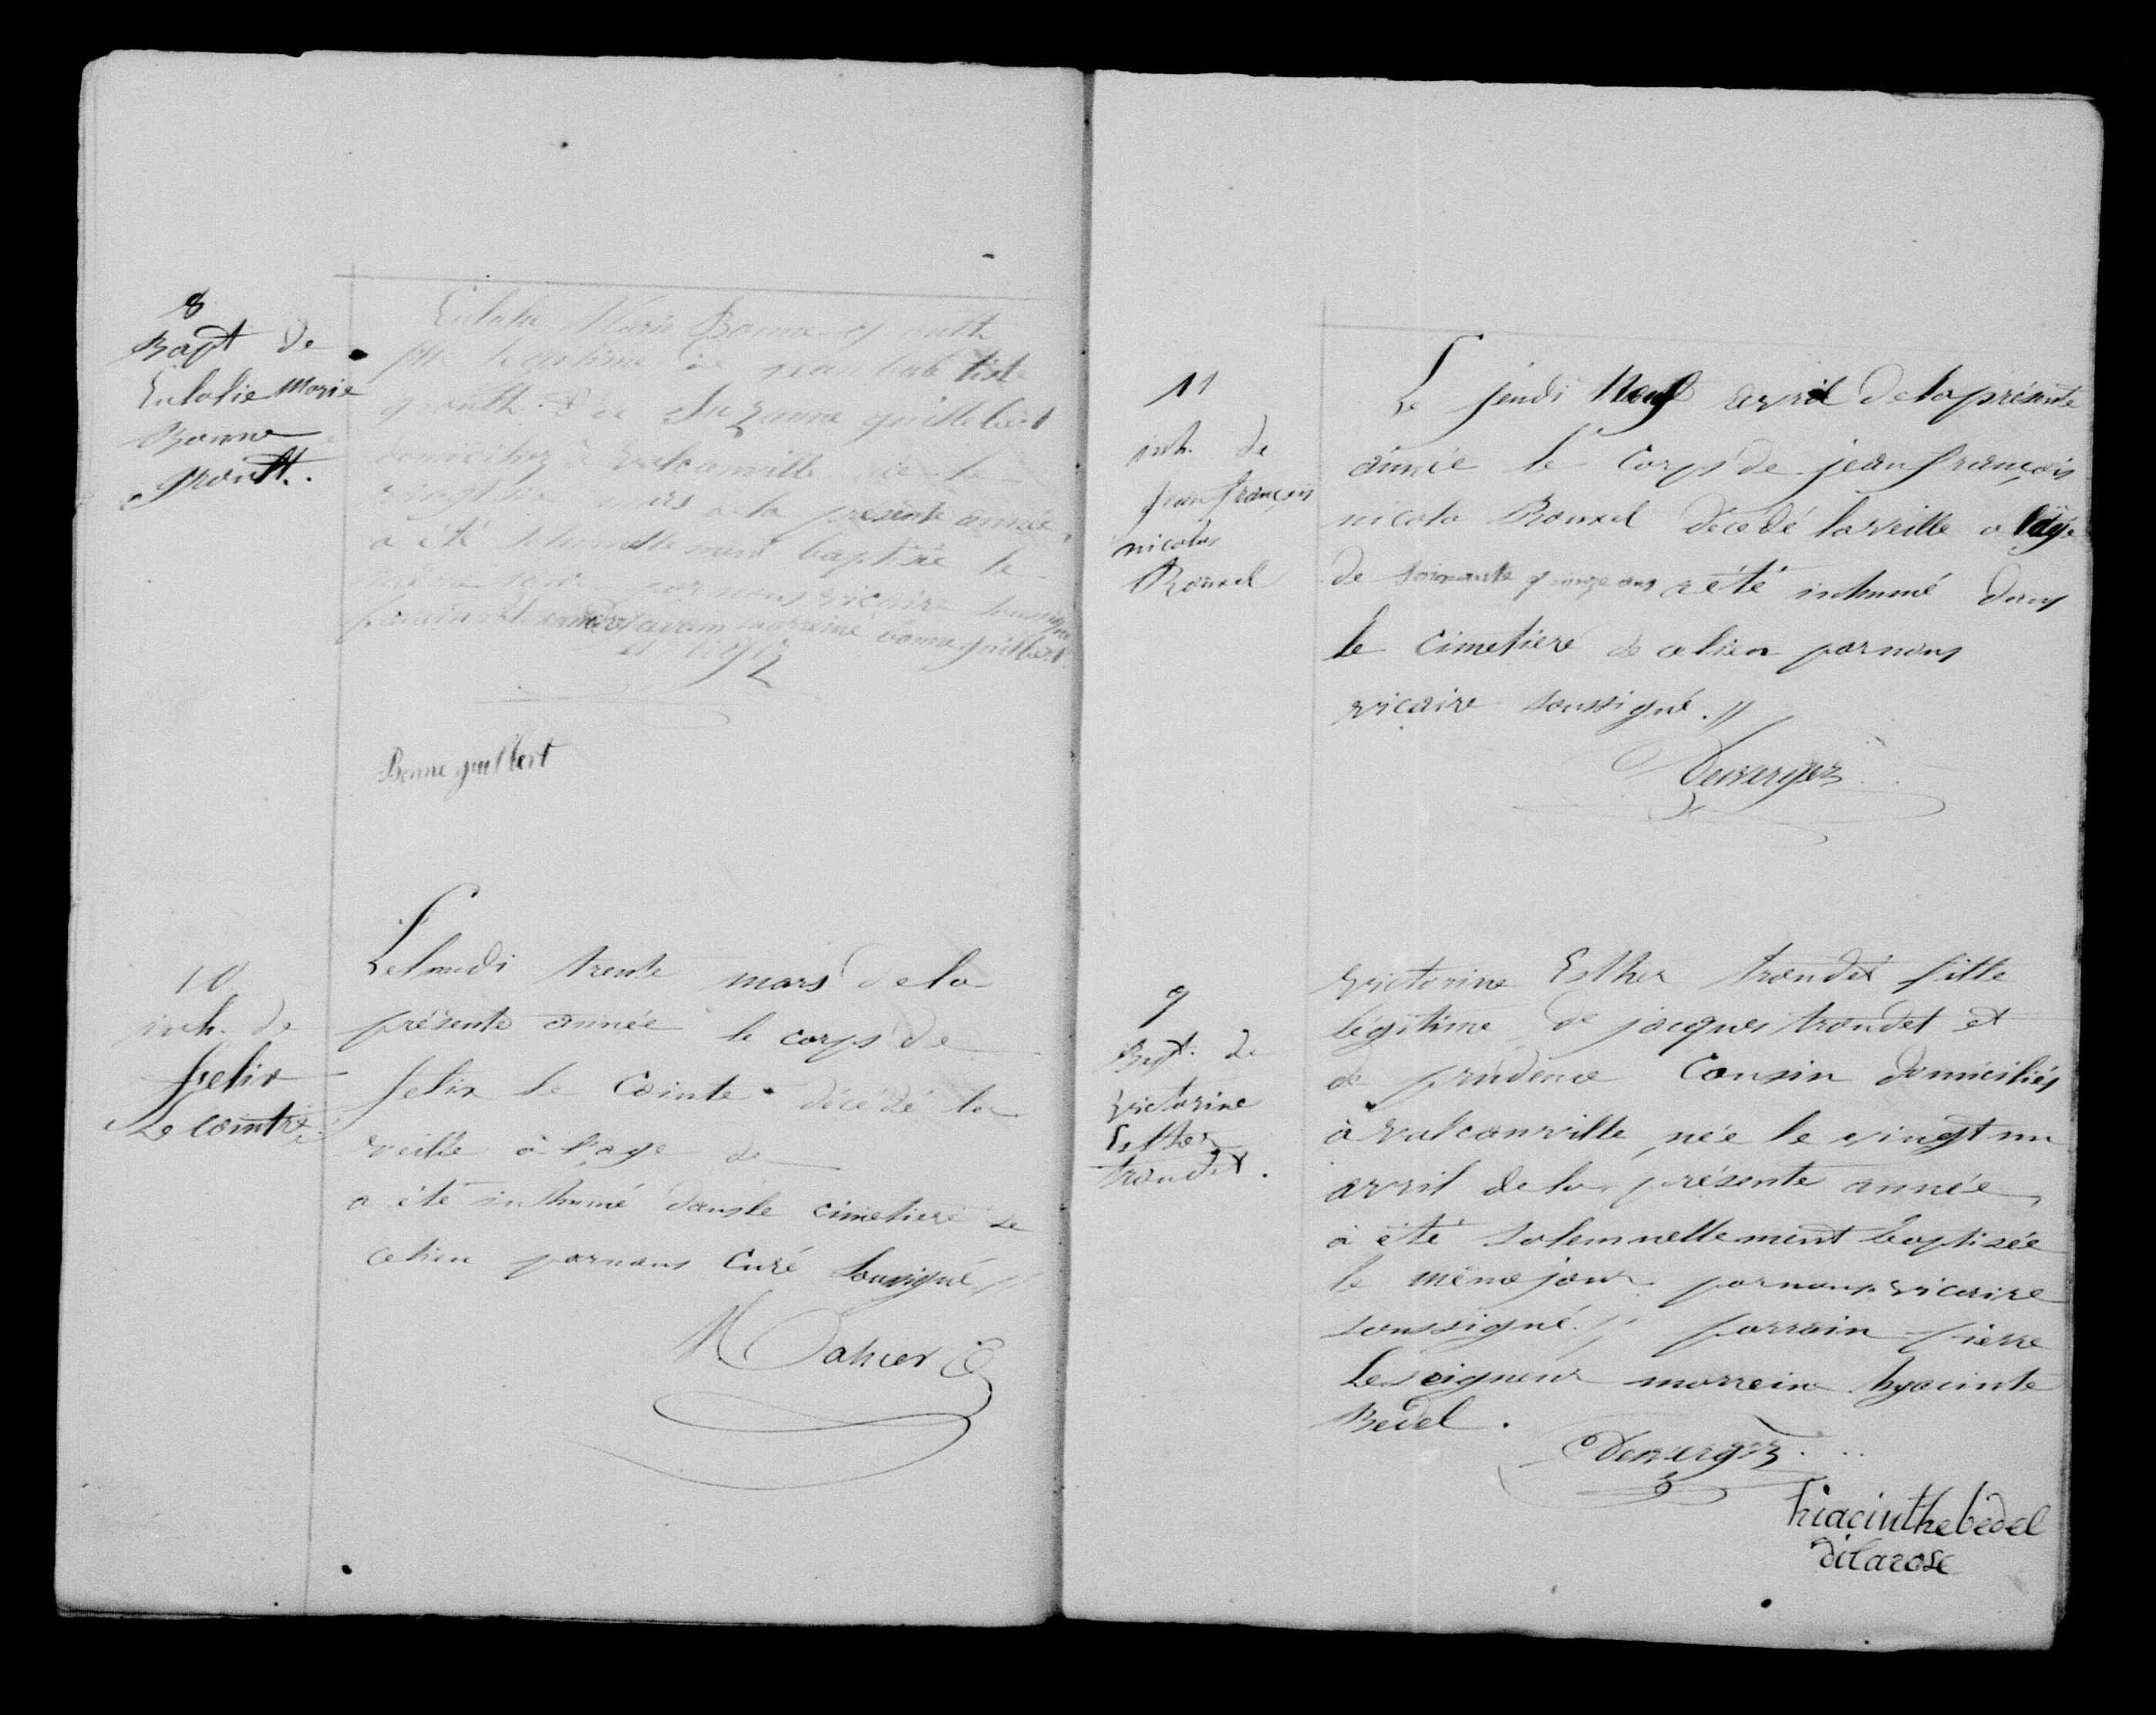 8
Bapt de
Eulalie Marie
Bonne
groult.
Eulalie Marie Bonne groult
fille legitime de jean batiste
groult & de Suzanne guillebert
domiciliés à valcanville née le
vingt mars de la présente année,
a été solennellement baptisée le
même jour par nous vicaire soussigné
parrain marreine bonne guilbert
Bonne guilbert
10
inh. de
felix
Le cointe
Le lundi trente mars de la
présente année le corps de
felix Le Cointe décédé la
veille à l'age de
a été inhumé dans le cimetiere de
ce lieu par nous Curé soussigné //
11
inh. de
jean françois
nicolas
Rouxel
Le jeudi Neuf avril de la présente
année le Corps de jean françois
nicola Rouxel décédé la veille a l'âge
de soixante quinze ans a été inhumé dans
le cimetiere de ce lieu par nous
vicaire soussigné. //
9
Bapt. de
victorine
Esther
troudet.
victorine Esther troudet fille
légitime de jacques troudet et
de prudence Cousin domiciliés
à valcanville, née le vingt un
avril de la présente année,
a été solemnellement baptisée
le même jour par nous vicaire
soussigné. // parrain pierre
Leseigneur marreine hyacinte
Bedel.
hiacinthe bedel
dilarose